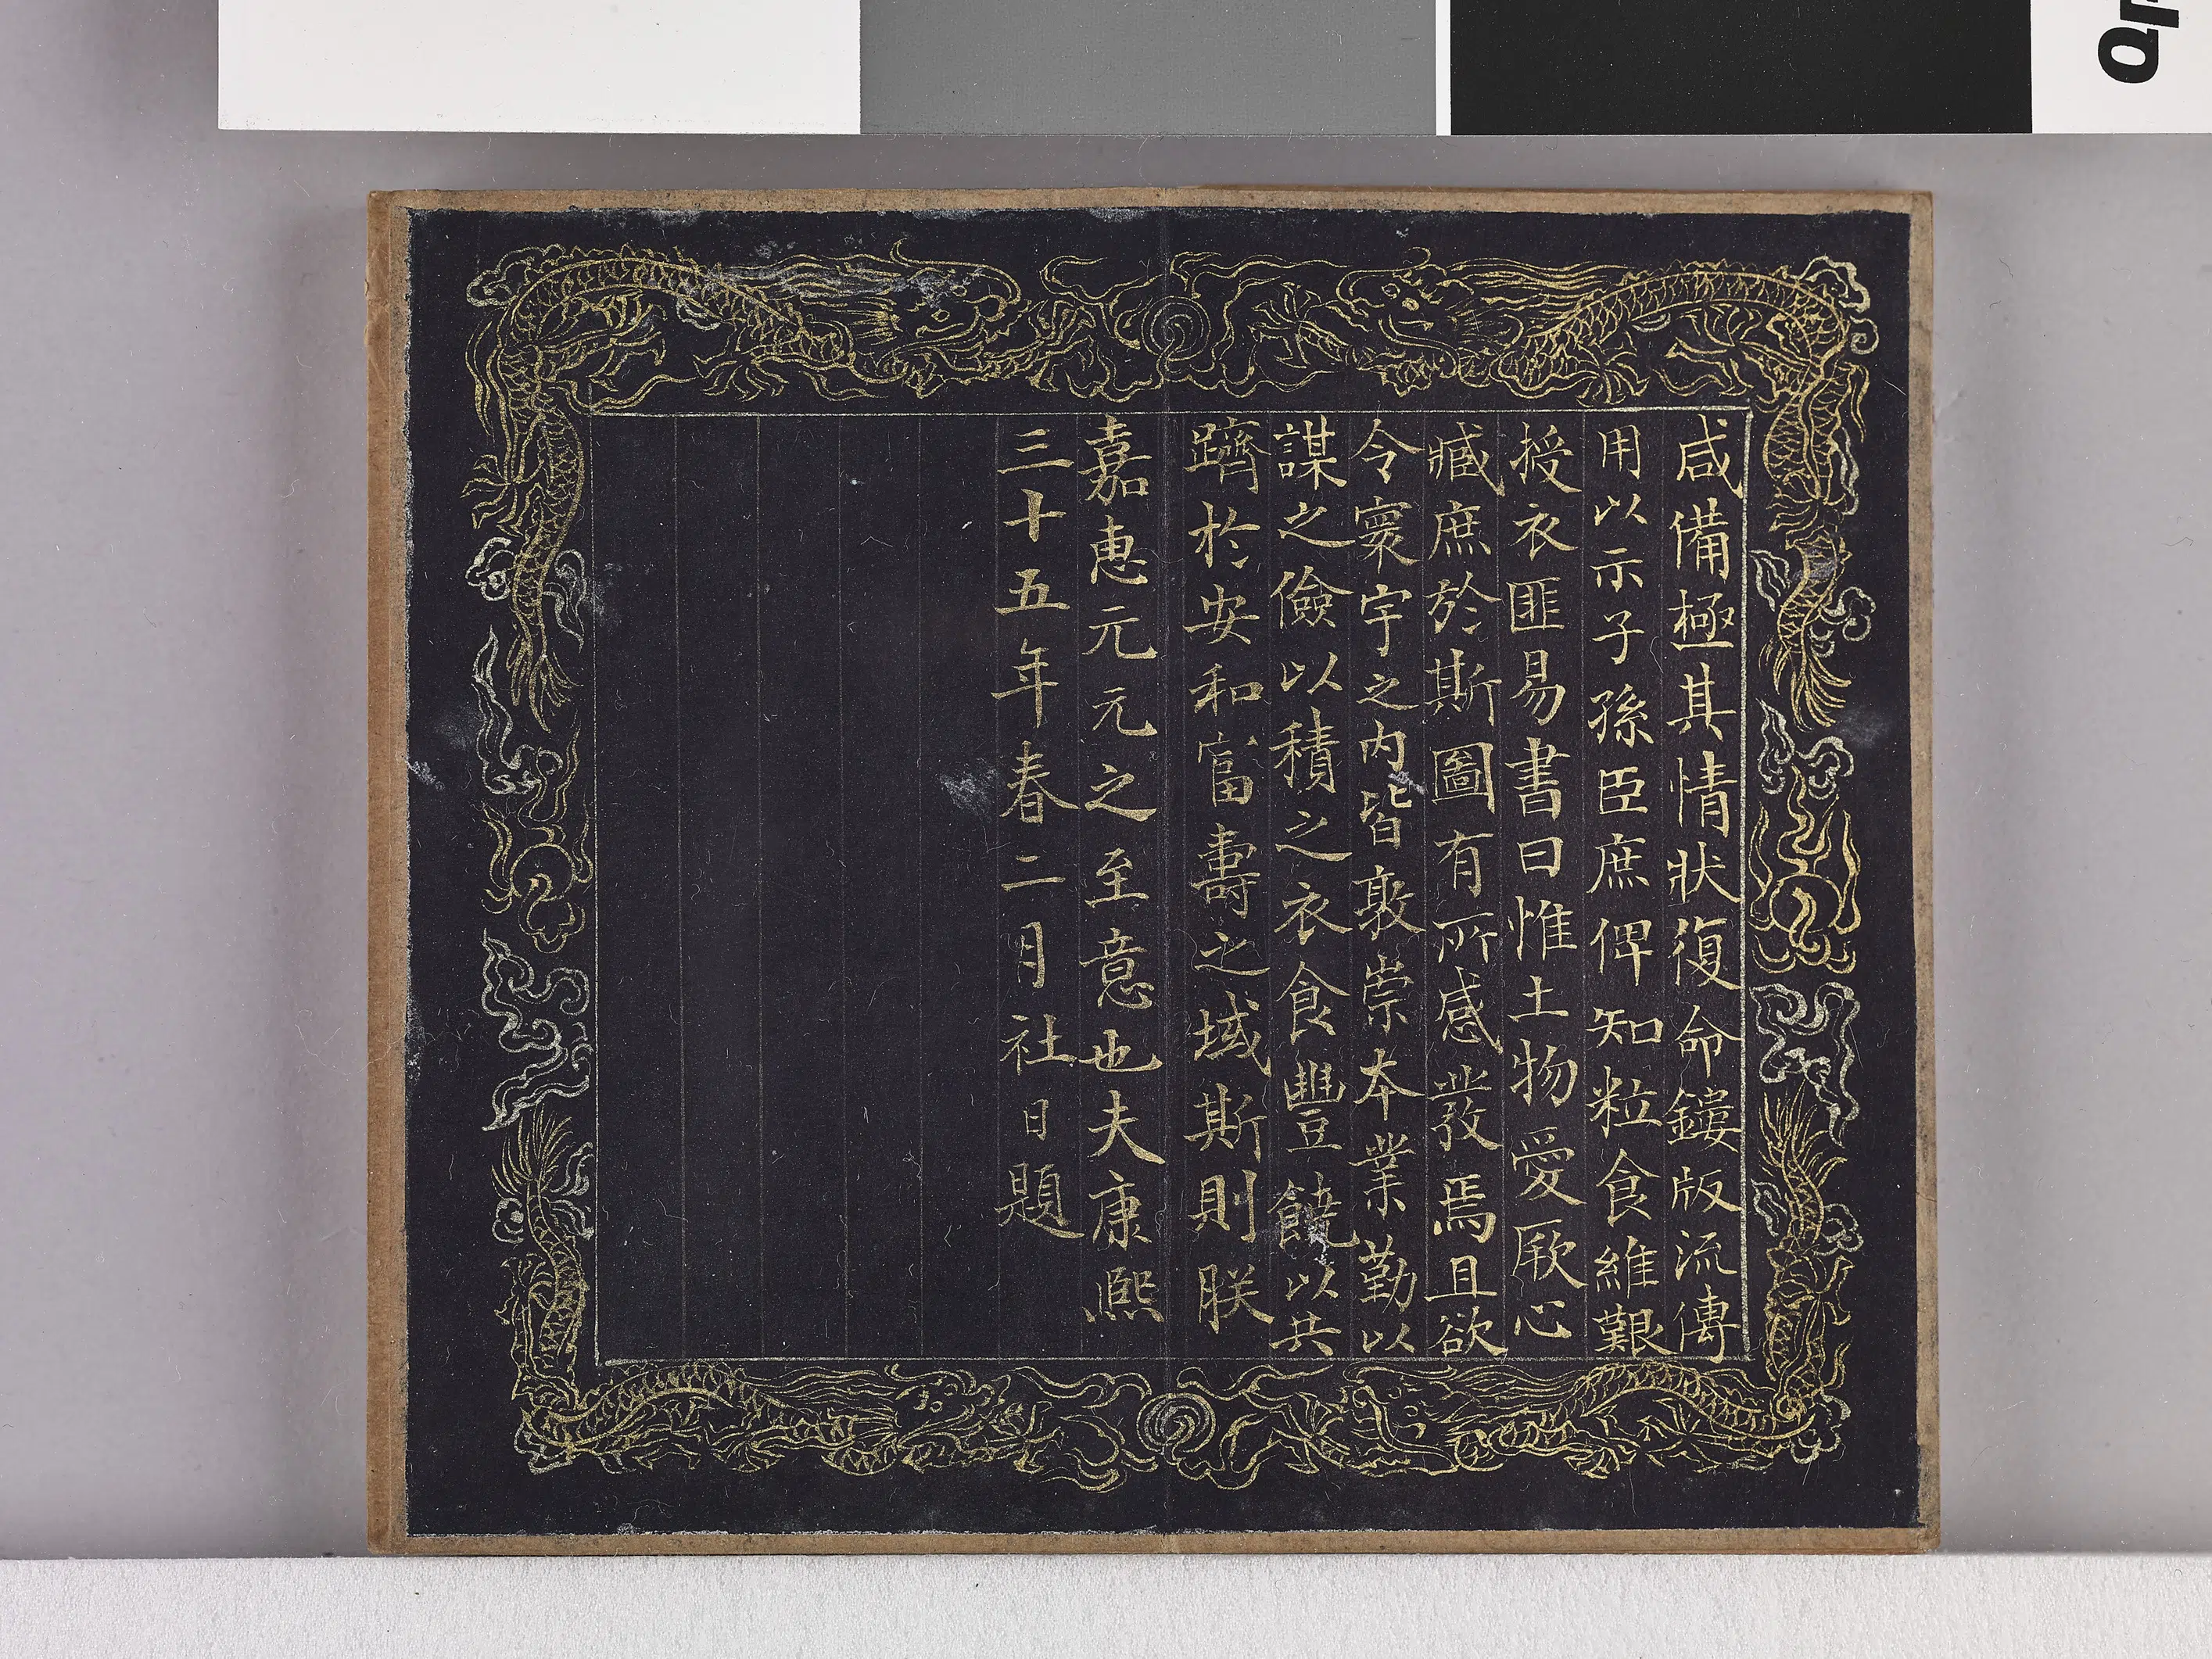 咸備極其情狀復命鏤版流傳
用以示子孫臣庶俾知粒食維艱
授衣匪易書曰惟土物愛厥心
臧庶於斯圖有所感發焉且欲
令寰宇之內皆敦崇本業勤以
謀之儉以積之衣食豐饒以共
躋於安和富壽之域斯則朕
嘉惠元元之至意也夫康熙
三十五年春二月社日題